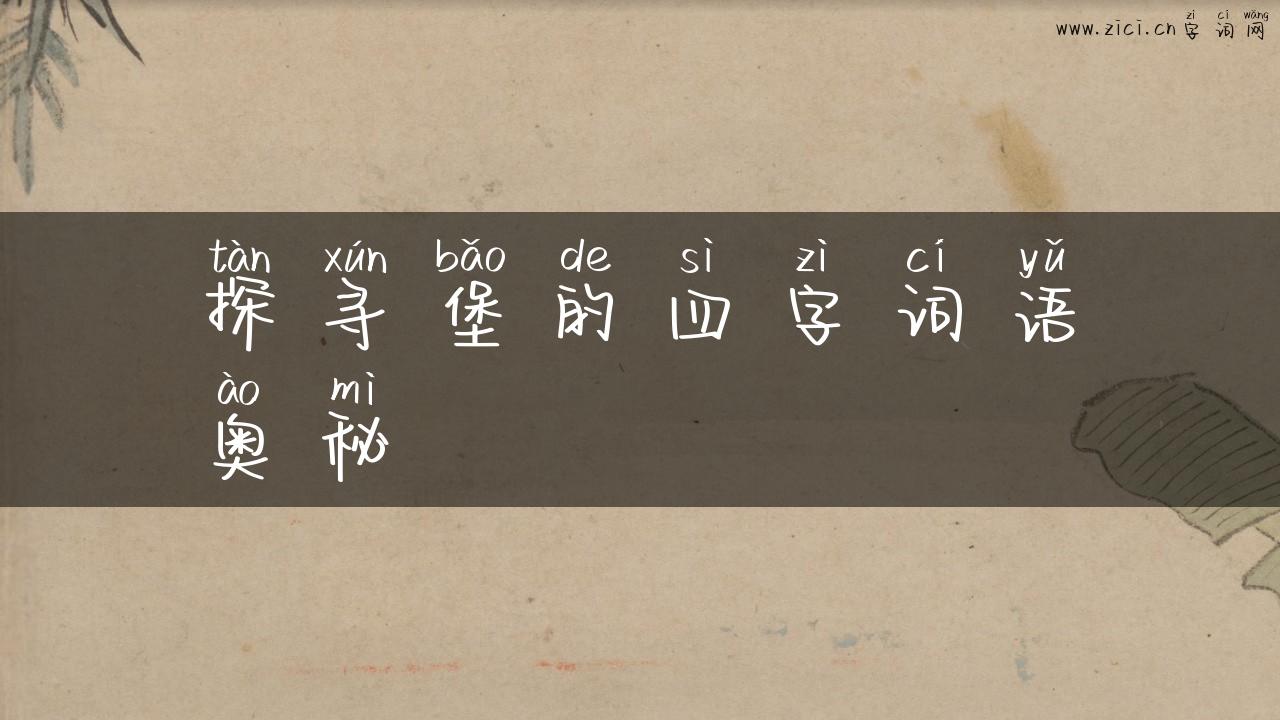 zì cí wǎng
www.zici.cn 字词网
tàn xún bǎo de sì zì cí yǔ
探寻堡的四字词语
ào mì
奥秘